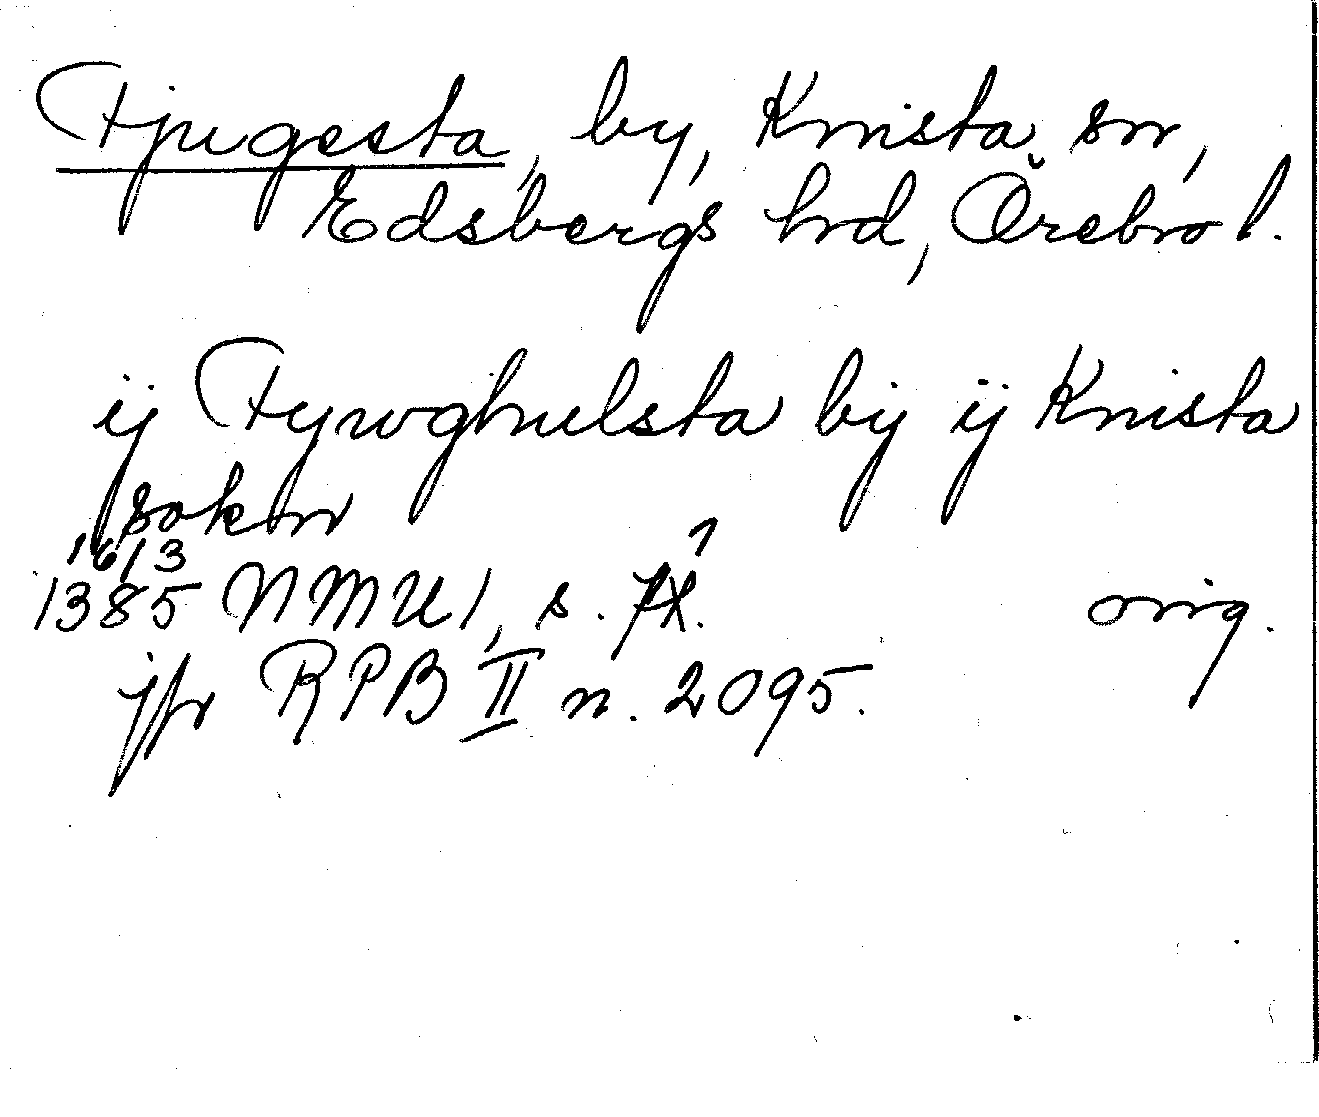 Fjugesta, by, Knista sn,
Edsbergs hd, Örebro l.
ij Fywghulsta by ij Knista
sokn
16/3
1385 NMU 1, s. 7
orig.
jfr RPB II n. 2095.